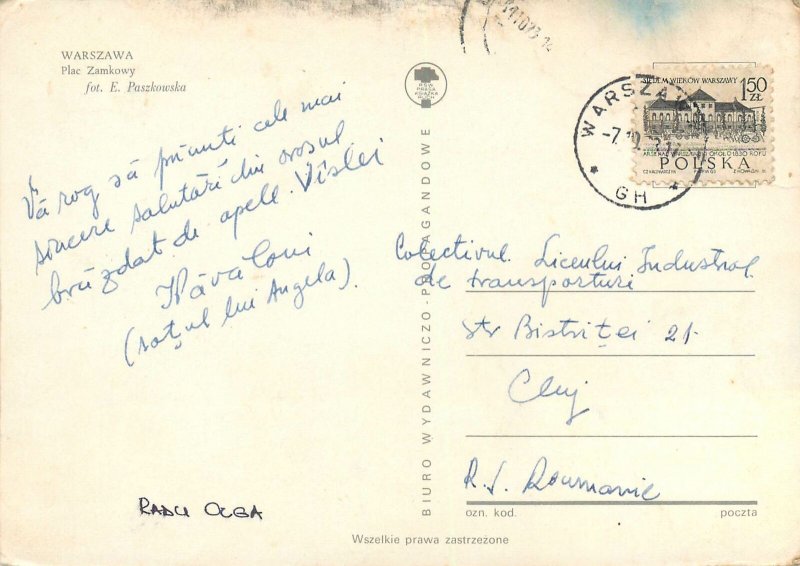 WARSZAWA
Plac Zamkowy
fot. E. Paszkowska
Vă rog să primiti cele mai
sincere salutări din orasul
brăzdat de apele Vislei
(soțul lui Angela).
RADU OLGA
BIURO WYDAWNICZO - PROPAGANDOWE
RSW
PRASA
KSIĄŻKA
RUCH
WARSZAWA
GH
SIEDEM WIEKÓW WARSZAWY
1,50
ZŁ
ARSENAŁ WARSZAWSKI OKOŁO 1830 ROKU
POLSKA
Colectivul Liceului Industrial
de transporturi
str Bistriței 21
Cluj
R.S. Roumanie
ozn. kod. poczta
Wszelkie prawa zastrzeżone